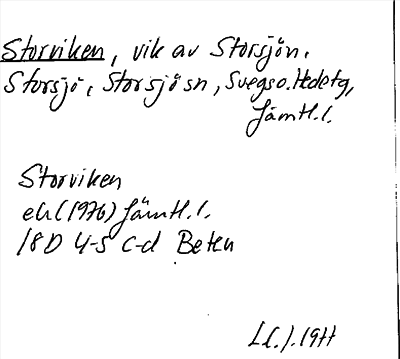 Storviken, vik av Storsjön.
Storsjö, Storsjösn, Svegs o. Hedetg,
Jämtl. l.
Storviken
ek (1976) Jämtl. l.
18D 4-5 c-d
1977